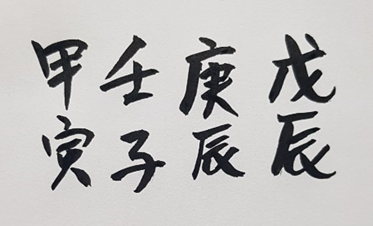 戊辰
庚辰
壬子
甲寅